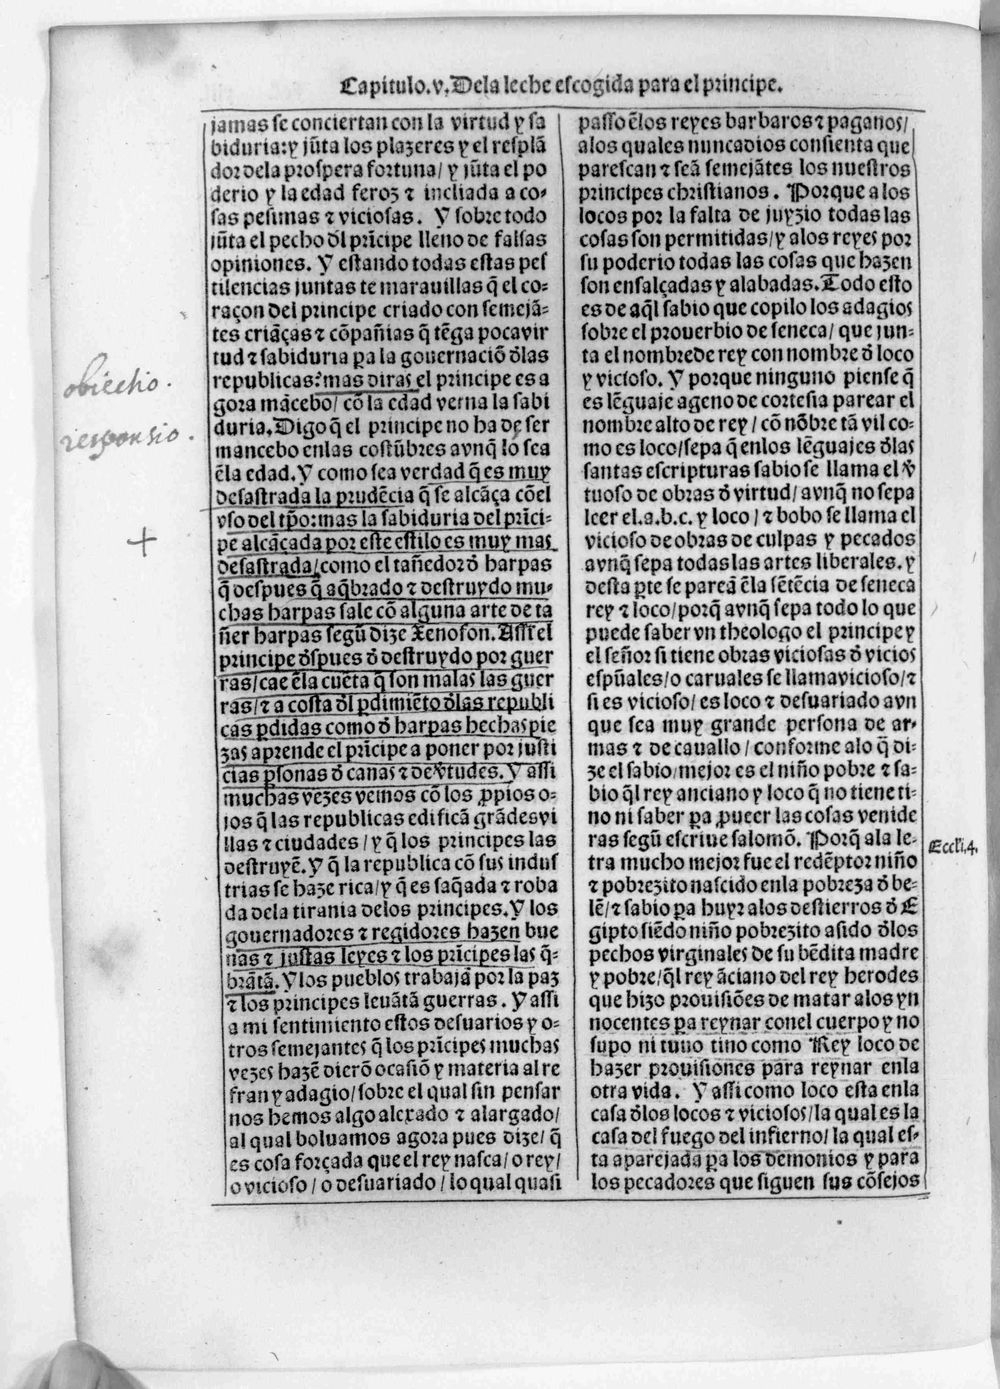 Capitulo.v.Dela leche escogida para el principe.
jamas se conciertan con la virtud y sa
biduria:y jũta los plazeres y el resplã
dor dela prospera fortuna/ y jũta el po
derio y la edad feroz ⁊ incliada a co-
sas pesimas ⁊ viciosas. Y sobre todo
jũta el pecho đl prĩcipe lleno de falsas
opiniones. Y estando todas estas pes
tilencias juntas te marauillas q̃ el co-
raçon del principe criado con semejã-
tes criãças ⁊ cõpañias q̃ tẽga poca vir
tud ⁊ sabiduria ꝑa la gouernaciõ đlas
republicas? mas diras el principe es a
gora mãcebo/ cõ la edad verna la sabi
duria. Digo q̃ el principe no ha de ser
mancebo enlas costũbres avnq̃ lo sea
ẽla edad. Y como sea verdad q̃ es muy
desastrada la prudẽcia q̃ se alcãça cõel
vso del tp̃o: mas la sabiduria del prĩci-
pe alcãçada por este estilo es muy mas
desastrada/ como el tañedor đ harpas
q̃ despues q̃ a q̃brado ⁊ destruydo mu-
chas harpas sale cõ alguna arte de ta
ñer harpas segũ dize Xenofon. Assi el
principe đspues đ destruydo por guer
ras/ cae ẽla cuẽta q̃ son malas las guer
ras/ ⁊ a costa đl ꝑdimiẽto đlas republi
cas ꝑdidas como đ harpas hechas pie
zas aprende el prĩcipe a poner por justi
cias ꝑsonas đ canas ⁊ de ṽtudes. Y assi
muchas vezes vemos cõ los ꝓpios o-
jos q̃ las republicas edificã grãdes vi
llas ⁊ ciudades/ y q̃ los principes las
destruyẽ. Y q̃ la republica cõ sus indus
trias se haze rica/ y q̃ es saq̃ada ⁊ roba
da dela tirania delos principes. Y los
gouernadores ⁊ regidores hazen bue
nas ⁊ justas leyes ⁊ los prĩcipes las q̃-
brãtã. Y los pueblos trabajã por la paz
⁊ los principes leuãtã guerras. Y assi
a mi sentimiento estos desuarios y o-
tros semejantes q̃ los prĩcipes muchas
vezes hazẽ dierõ ocasiõ y materia al re
fran y adagio/ sobre el qual sin pensar
nos hemos algo alexado ⁊ alargado/
al qual boluamos agora pues dize/ q̃
es cosa forçada que el rey nasca/ o rey/
o vicioso/ o desuariado/ lo qual quasi
passo ẽlos reyes barbaros ⁊ paganos/
alos quales nunca dios consienta que
parescan ⁊ seã semejãtes los nuestros
principes christianos. Porque a los
locos por la falta de juyzio todas las
cosas son permitidas/ y alos reyes por
su poderio todas las cosas que hazen
son ensalçadas y alabadas. Todo esto
es de aq̃l sabio que copilo los adagios
sobre el prouerbio de seneca/ que jun-
ta el nombre de rey con nombre đ loco
y vicioso. Y porque ninguno piense q̃
es lẽguaje ageno de cortesia parear el
nombre alto de rey/ cõ nõbre tã vil co-
mo es loco/ sepa q̃ enlos lẽguajes đlas
santas escripturas sabio se llama el ṽ
tuoso de obras đ virtud/ avnq̃ no sepa
leer el.a.b.c. y loco/ ⁊ bobo se llama el
vicioso de obras de culpas y pecados
avnq̃ sepa todas las artes liberales. y
desta ꝑte se pareã ẽla sẽtẽcia de seneca
rey ⁊ loco/ porq̃ avnq̃ sepa todo lo que
puede saber vn theologo el principe y
el señor si tiene obras viciosas đ vicios
esp̃uales/ o carnales se llama vicioso/ ⁊
si es vicioso/ es loco ⁊ desuariado avn
que sea muy grande persona de ar-
mas ⁊ de cauallo/ conforme alo q̃ di-
ze el sabio/ mejor es el niño pobre ⁊ sa-
bio q̃l rey anciano y loco q̃ no tiene ti-
no ni saber ꝑa ꝓueer las cosas venide
ras segũ escriue salomõ. Porq̃ ala le-
tra mucho mejor fue el redẽptor niño
⁊ pobrezito nascido enla pobreza đ be-
lẽ/ ⁊ sabio ꝑa huyr alos destierros đ E
gipto siẽdo niño pobrezito asido đlos
pechos virginales de su bẽdita madre
y pobre/ q̃l rey ãciano del rey herodes
que hizo prouisiões de matar alos yn
nocentes ꝑa reynar conel cuerpo y no
supo ni tuuo tino como Rey loco de
hazer prouisiones para reynar enla
otra vida. Y assi como loco esta enla
casa đlos locos ⁊ viciosos/ la qual es la
casa del fuego del infierno/ la qual es-
ta aparejada ꝑa los demonios y para
los pecadores que siguen sus cõsejos
obiectio.
responsio.
Eccli.4.